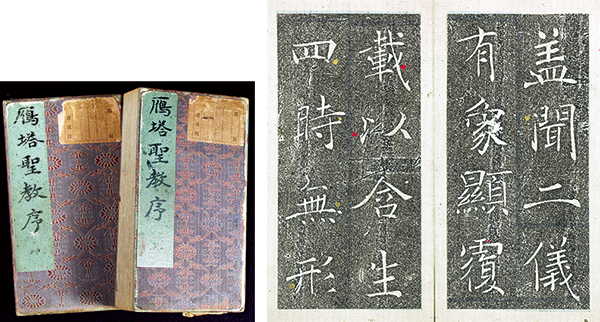 鴈塔聖教序
鴈塔聖教序
盖聞二儀
有象顯覆
載以含生
四時無形